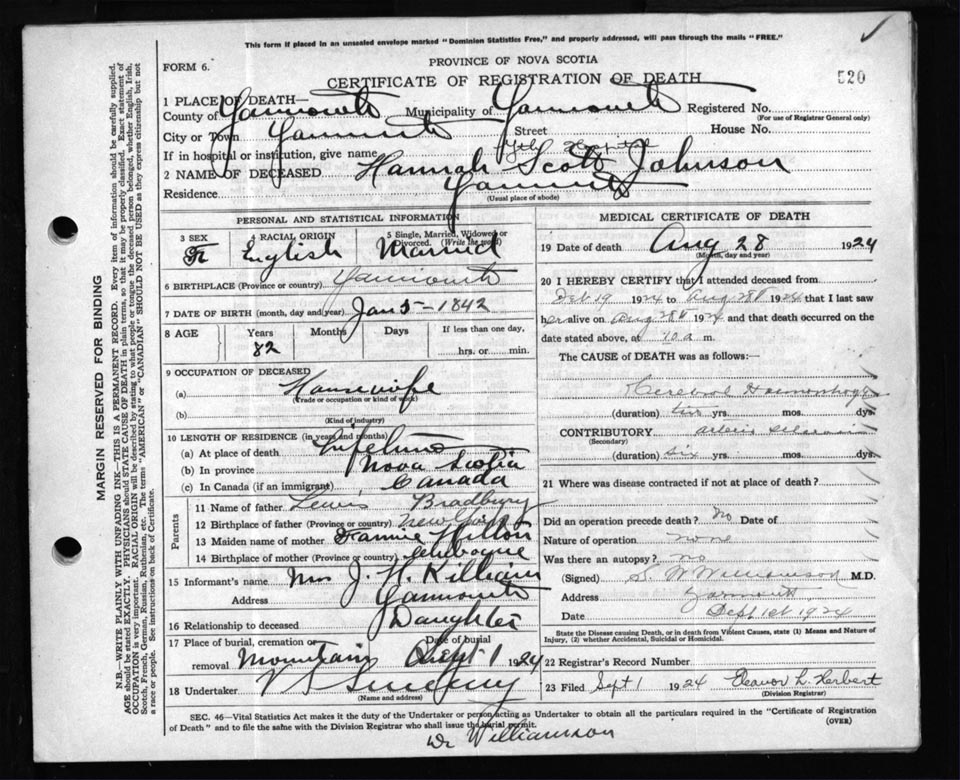 This form if placed in an unsealed envelope marked "Dominion Statistics Free," and properly addressed, will pass through the mails "FREE."
FORM 6.
PROVINCE OF NOVA SCOTIA
CERTIFICATE OF REGISTRATION OF DEATH
520
1 PLACE OF DEATH—
County of Yarmouth Municipality of Yarmouth Registered No.
(For use of Registrar General only)
City or Town Yarmouth Street House No.
If in hospital or institution, give name
2 NAME OF DECEASED Hannah Scott Johnson
Residence Yarmouth
(Usual place of abode)
PERSONAL AND STATISTICAL INFORMATION
3 SEX F 4 RACIAL ORIGIN English 5 Single, Married, Widowed or Divorced. (Write the word) Married
6 BIRTHPLACE (Province or country) Yarmouth
7 DATE OF BIRTH (month, day and year) Jan 5 - 1842
8 AGE Years 82 Months Days If less than one day, hrs. or min.
9 OCCUPATION OF DECEASED
(a) Housewife
(Trade or occupation or kind of work)
(b)
(Kind of industry)
10 LENGTH OF RESIDENCE (in years and months)
(a) At place of death Lifetime
(b) In province Nova Scotia
(c) In Canada (if an immigrant) Canada
Parents
11 Name of father Lewis Bradbury
12 Birthplace of father (Province or country)
13 Maiden name of mother Fannie Hilton
14 Birthplace of mother (Province or country)
15 Informant's name Mrs J. H. Killiam
Address Yarmouth
16 Relationship to deceased Daughter
17 Place of burial, cremation or removal Mountain Date of burial Sept 1 1924
18 Undertaker V S Sweeny
(Name and address)
MEDICAL CERTIFICATE OF DEATH
19 Date of death Aug 28 1924
(Month, day and year)
20 I HEREBY CERTIFY that I attended deceased from
Feb 19 1924 to Aug 28 1924 that I last saw
her alive on Aug 28 1924 and that death occurred on the
date stated above, at 10 a m.
The CAUSE of DEATH was as follows:
Cerebral Haemorrhage
(duration) yrs. mos. dys.
CONTRIBUTORY
(Secondary)
(duration) six yrs. mos. dys.
21 Where was disease contracted if not at place of death?
Did an operation precede death? No Date of
Nature of operation none
Was there an autopsy? no
(Signed) S. W Williamson M.D.
Address Yarmouth
Date Sept 1st 1924
State the Disease causing Death, or in death from Violent Causes, state (1) Means and Nature of
Injury, (2) whether Accidental, Suicidal or Homicidal.
22 Registrar's Record Number
23 Filed Sept 1 1924 Eleanor L. Herbert
(Division Registrar)
SEC. 46—Vital Statistics Act makes it the duty of the Undertaker or person acting as Undertaker to obtain all the particulars required in the "Certificate of Registration
of Death" and to file the same with the Division Registrar who shall issue the burial permit.
(OVER)
Dr Williamson
MARGIN RESERVED FOR BINDING
N.B.—WRITE PLAINLY WITH UNFADING INK—THIS IS A PERMANENT RECORD. Every item of information should be carefully supplied.
AGE should be stated EXACTLY. PHYSICIANS should STATE CAUSE OF DEATH in plain terms, so that it may be properly classified. Exact statement of
OCCUPATION is very important. RACIAL ORIGIN will be described by stating to what people or tongue the deceased person belonged, whether English, Irish,
Scotch, French, German, Russian, Ruthenian, etc. The terms "AMERICAN" or "CANADIAN" SHOULD NOT BE USED as they express citizenship but not
a race or people. See instructions on back of Certificate.